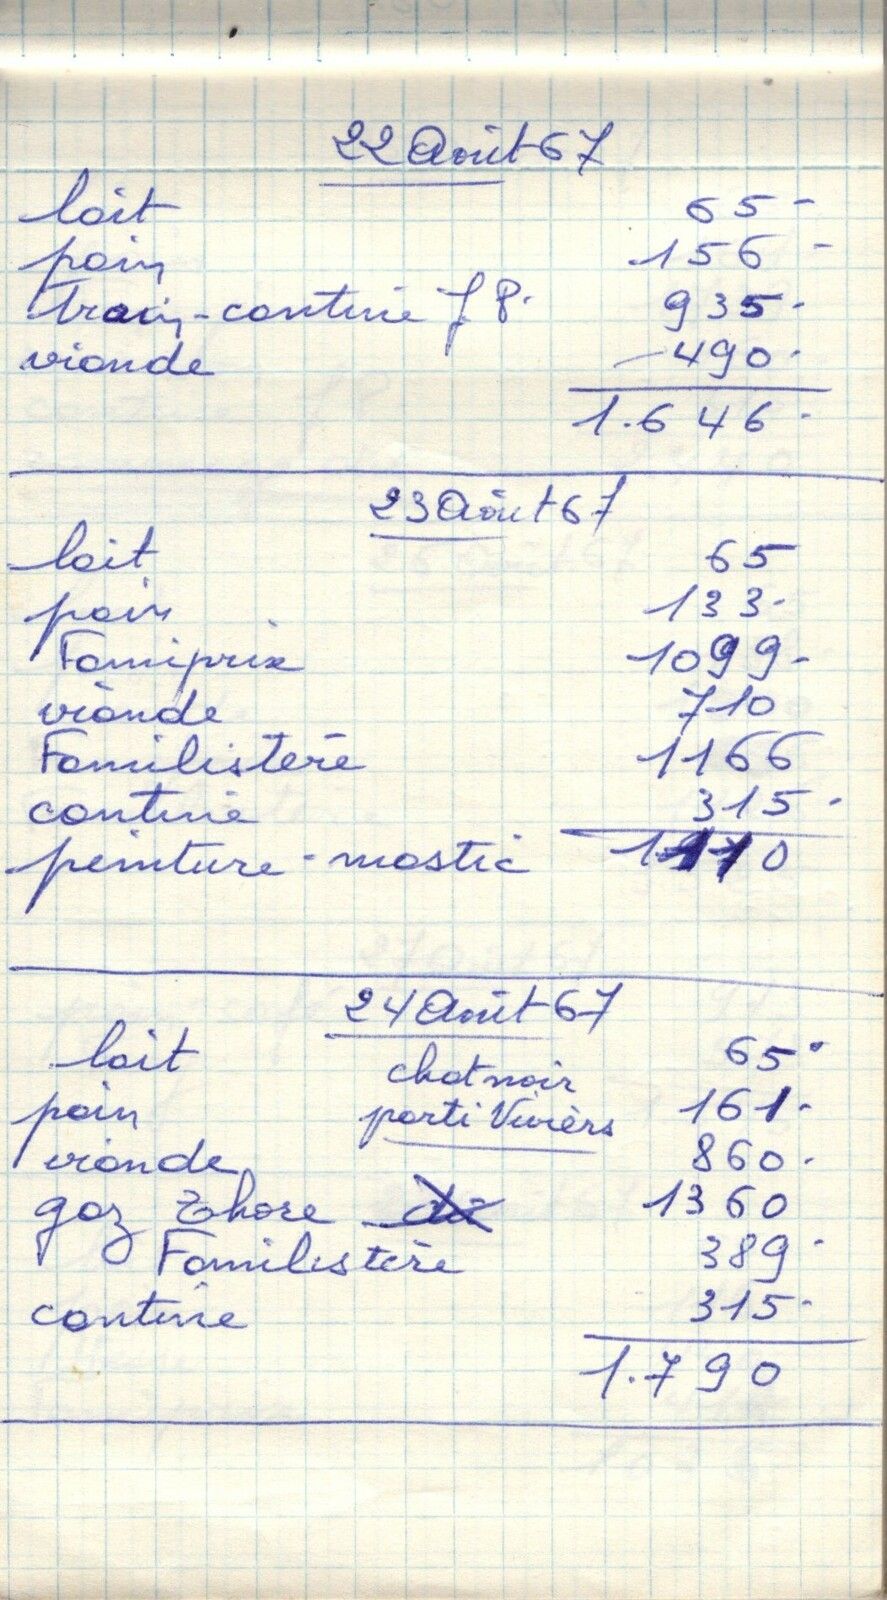 22 Août 67
lait 65-
pain 156-
train-cantine J P. 935-
viande 490.
1.646.
23 Août 67
lait 65
pain 133.
Famiprix 1099-
viande 710
Familistère 1166
cantine 315.
peinture-mastic 0
24 Août 67
lait 65.
chat noir
pain parti Viviers 161.
viande 860.
gaz 1360
Familistère 389.
cantine 315.
1.790